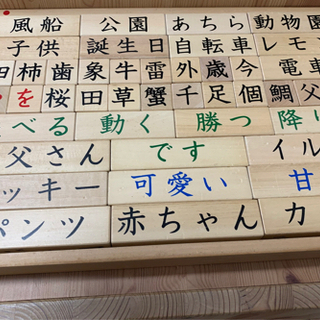 風船 公園 あちら 動物園
子供 誕生日 自転車 レモ
田 柿 歯 象 牛 雷 外 歳 今 電車
を 桜 田 草 蟹 千 足 個 鯛 父
べる 動く 勝つ 降り
父さん です イル
ッキー 可愛い 甘
パンツ 赤ちゃん カ